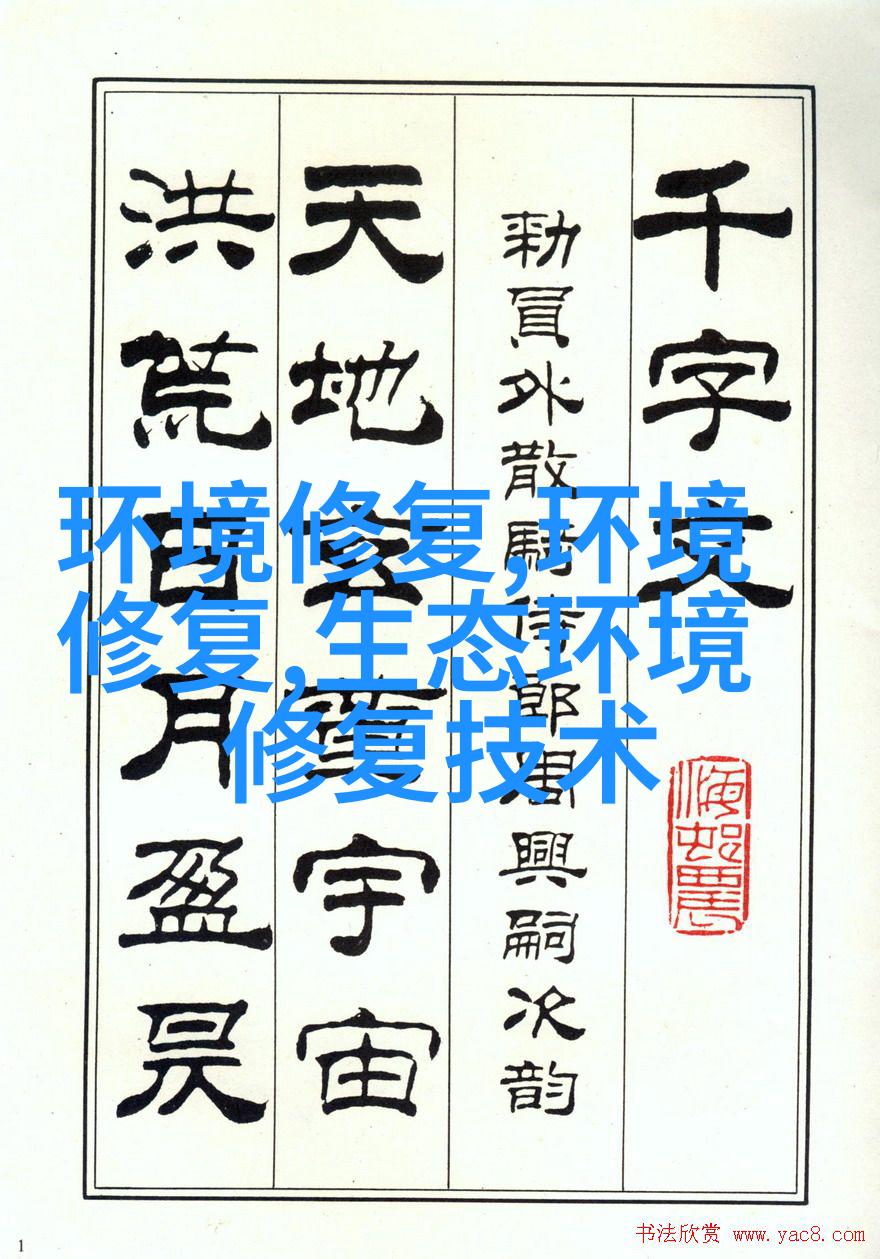 千字文
勑員外散騎侍郎周興嗣次韵
天地玄黃宇宙
洪荒日月盈昃
环境修复,环境
修复,生态环境
修复技术
1
书法欣赏 www.yac8.com